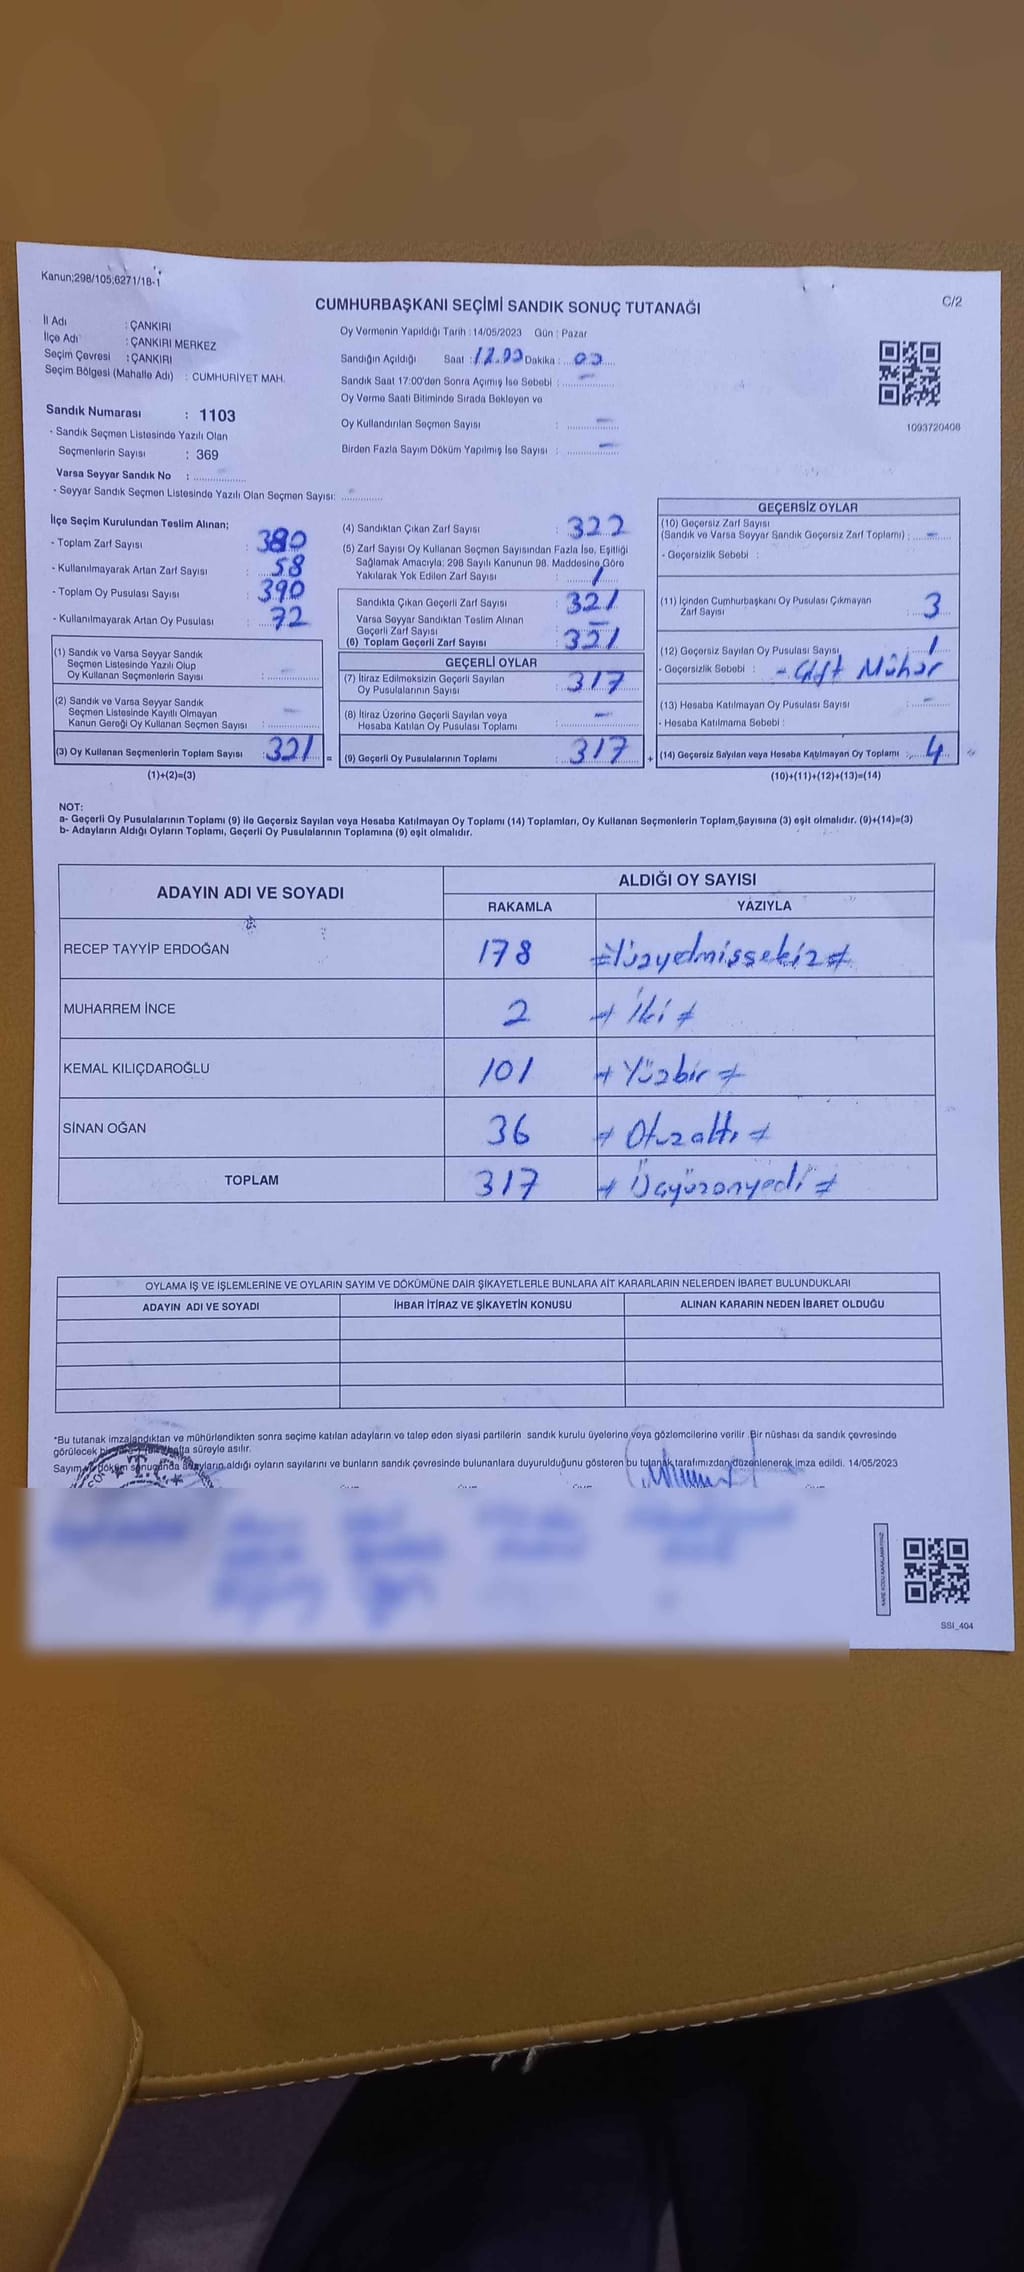 Kanun;298/105;6271/18-1
C/2
CUMHURBAŞKANI SEÇİMİ SANDIK SONUÇ TUTANAĞI
İl Adı : ÇANKIRI
İlçe Adı : ÇANKIRI MERKEZ
Seçim Çevresi : ÇANKIRI
Seçim Bölgesi (Mahalle Adı) : CUMHURİYET MAH.
Sandık Numarası : 1103
- Sandık Seçmen Listesinde Yazılı Olan
Seçmenlerin Sayısı : 369
Varsa Seyyar Sandık No : ............
- Seyyar Sandık Seçmen Listesinde Yazılı Olan Seçmen Sayısı: - ............
Oy Vermenin Yapıldığı Tarih : 14/05/2023 Gün : Pazar
Sandığın Açıldığı Saat : Dakika : 00
Sandık Saat 17:00'den Sonra Açımış İse Sebebi : -
Oy Verme Saati Bitiminde Sırada Bekleyen ve
Oy Kullandırılan Seçmen Sayısı : -
Birden Fazla Sayım Döküm Yapılmış İse Sayısı : -
1093720408
İlçe Seçim Kurulundan Teslim Alınan;
- Toplam Zarf Sayısı : 380
- Kullanılmayarak Artan Zarf Sayısı : 58
- Toplam Oy Pusulası Sayısı : 390
- Kullanılmayarak Artan Oy Pusulası : 72
(1) Sandık ve Varsa Seyyar Sandık
Seçmen Listesinde Yazılı Olup
Oy Kullanan Seçmenlerin Sayısı : -
(2) Sandık ve Varsa Seyyar Sandık
Seçmen Listesinde Kayıtlı Olmayan
Kanun Gereği Oy Kullanan Seçmen Sayısı : -
(3) Oy Kullanan Seçmenlerin Toplam Sayısı : 321 =
(1)+(2)=(3)
(4) Sandıktan Çıkan Zarf Sayısı : 322
(5) Zarf Sayısı Oy Kullanan Seçmen Sayısından Fazla İse, Eşitliği
Sağlamak Amacıyla; 298 Sayılı Kanunun 98. Maddesine Göre
Yakılarak Yok Edilen Zarf Sayısı : 1
Sandıkta Çıkan Geçerli Zarf Sayısı : 321
Varsa Seyyar Sandıktan Teslim Alınan
Geçerli Zarf Sayısı : -
(6) Toplam Geçerli Zarf Sayısı : 321
GEÇERLİ OYLAR
(7) İtiraz Edilmeksizin Geçerli Sayılan
Oy Pusulalarının Sayısı : 317
(8) İtiraz Üzerine Geçerli Sayılan veya
Hesaba Katılan Oy Pusulası Toplamı : -
(9) Geçerli Oy Pusulalarının Toplamı : 317 +
GEÇERSİZ OYLAR
(10) Geçersiz Zarf Sayısı
(Sandık ve Varsa Seyyar Sandık Geçersiz Zarf Toplamı) : -
- Geçersizlik Sebebi :
(11) İçinden Cumhurbaşkanı Oy Pusulası Çıkmayan
Zarf Sayısı : 3
(12) Geçersiz Sayılan Oy Pusulası Sayısı : 1
- Geçersizlik Sebebi : - Çift Mühür
(13) Hesaba Katılmayan Oy Pusulası Sayısı : -
- Hesaba Katılmama Sebebi :
(14) Geçersiz Sayılan veya Hesaba Katılmayan Oy Toplamı : 4
(10)+(11)+(12)+(13)=(14)
NOT:
a- Geçerli Oy Pusulalarının Toplamı (9) ile Geçersiz Sayılan veya Hesaba Katılmayan Oy Toplamı (14) Toplamları, Oy Kullanan Seçmenlerin Toplam Sayısına (3) eşit olmalıdır. (9)+(14)=(3)
b- Adayların Aldığı Oyların Toplamı, Geçerli Oy Pusulalarının Toplamına (9) eşit olmalıdır.
ADAYIN ADI VE SOYADI
ALDIĞI OY SAYISI
RAKAMLA YAZIYLA
RECEP TAYYİP ERDOĞAN 178 ≠Yüzyetmişsekiz≠
MUHARREM İNCE 2 ≠ İki ≠
KEMAL KILIÇDAROĞLU 101 ≠ Yüzbir ≠
SİNAN OĞAN 36 ≠ Otuzaltı ≠
TOPLAM 317 ≠ Üçyüzonyedi ≠
OYLAMA İŞ VE İŞLEMLERİNE VE OYLARIN SAYIM VE DÖKÜMÜNE DAİR ŞİKAYETLERLE BUNLARA AİT KARARLARIN NELERDEN İBARET BULUNDUKLARI
ADAYIN ADI VE SOYADI İHBAR İTİRAZ VE ŞİKAYETİN KONUSU ALINAN KARARIN NEDEN İBARET OLDUĞU
*Bu tutanak imzalandıktan ve mühürlendikten sonra seçime katılan adayların ve talep eden siyasi partilerin sandık kurulu üyelerine veya gözlemcilerine verilir. Bir nüshası da sandık çevresinde
görülecek bir hafta süreyle asılır.
Sayım ve döküm sonucunda adayların aldığı oyların sayılarını ve bunların sandık çevresinde bulunanlara duyurulduğunu gösteren bu tutanak tarafımızdan düzenlenerek imza edildi. 14/05/2023
T.C.
SSI_404